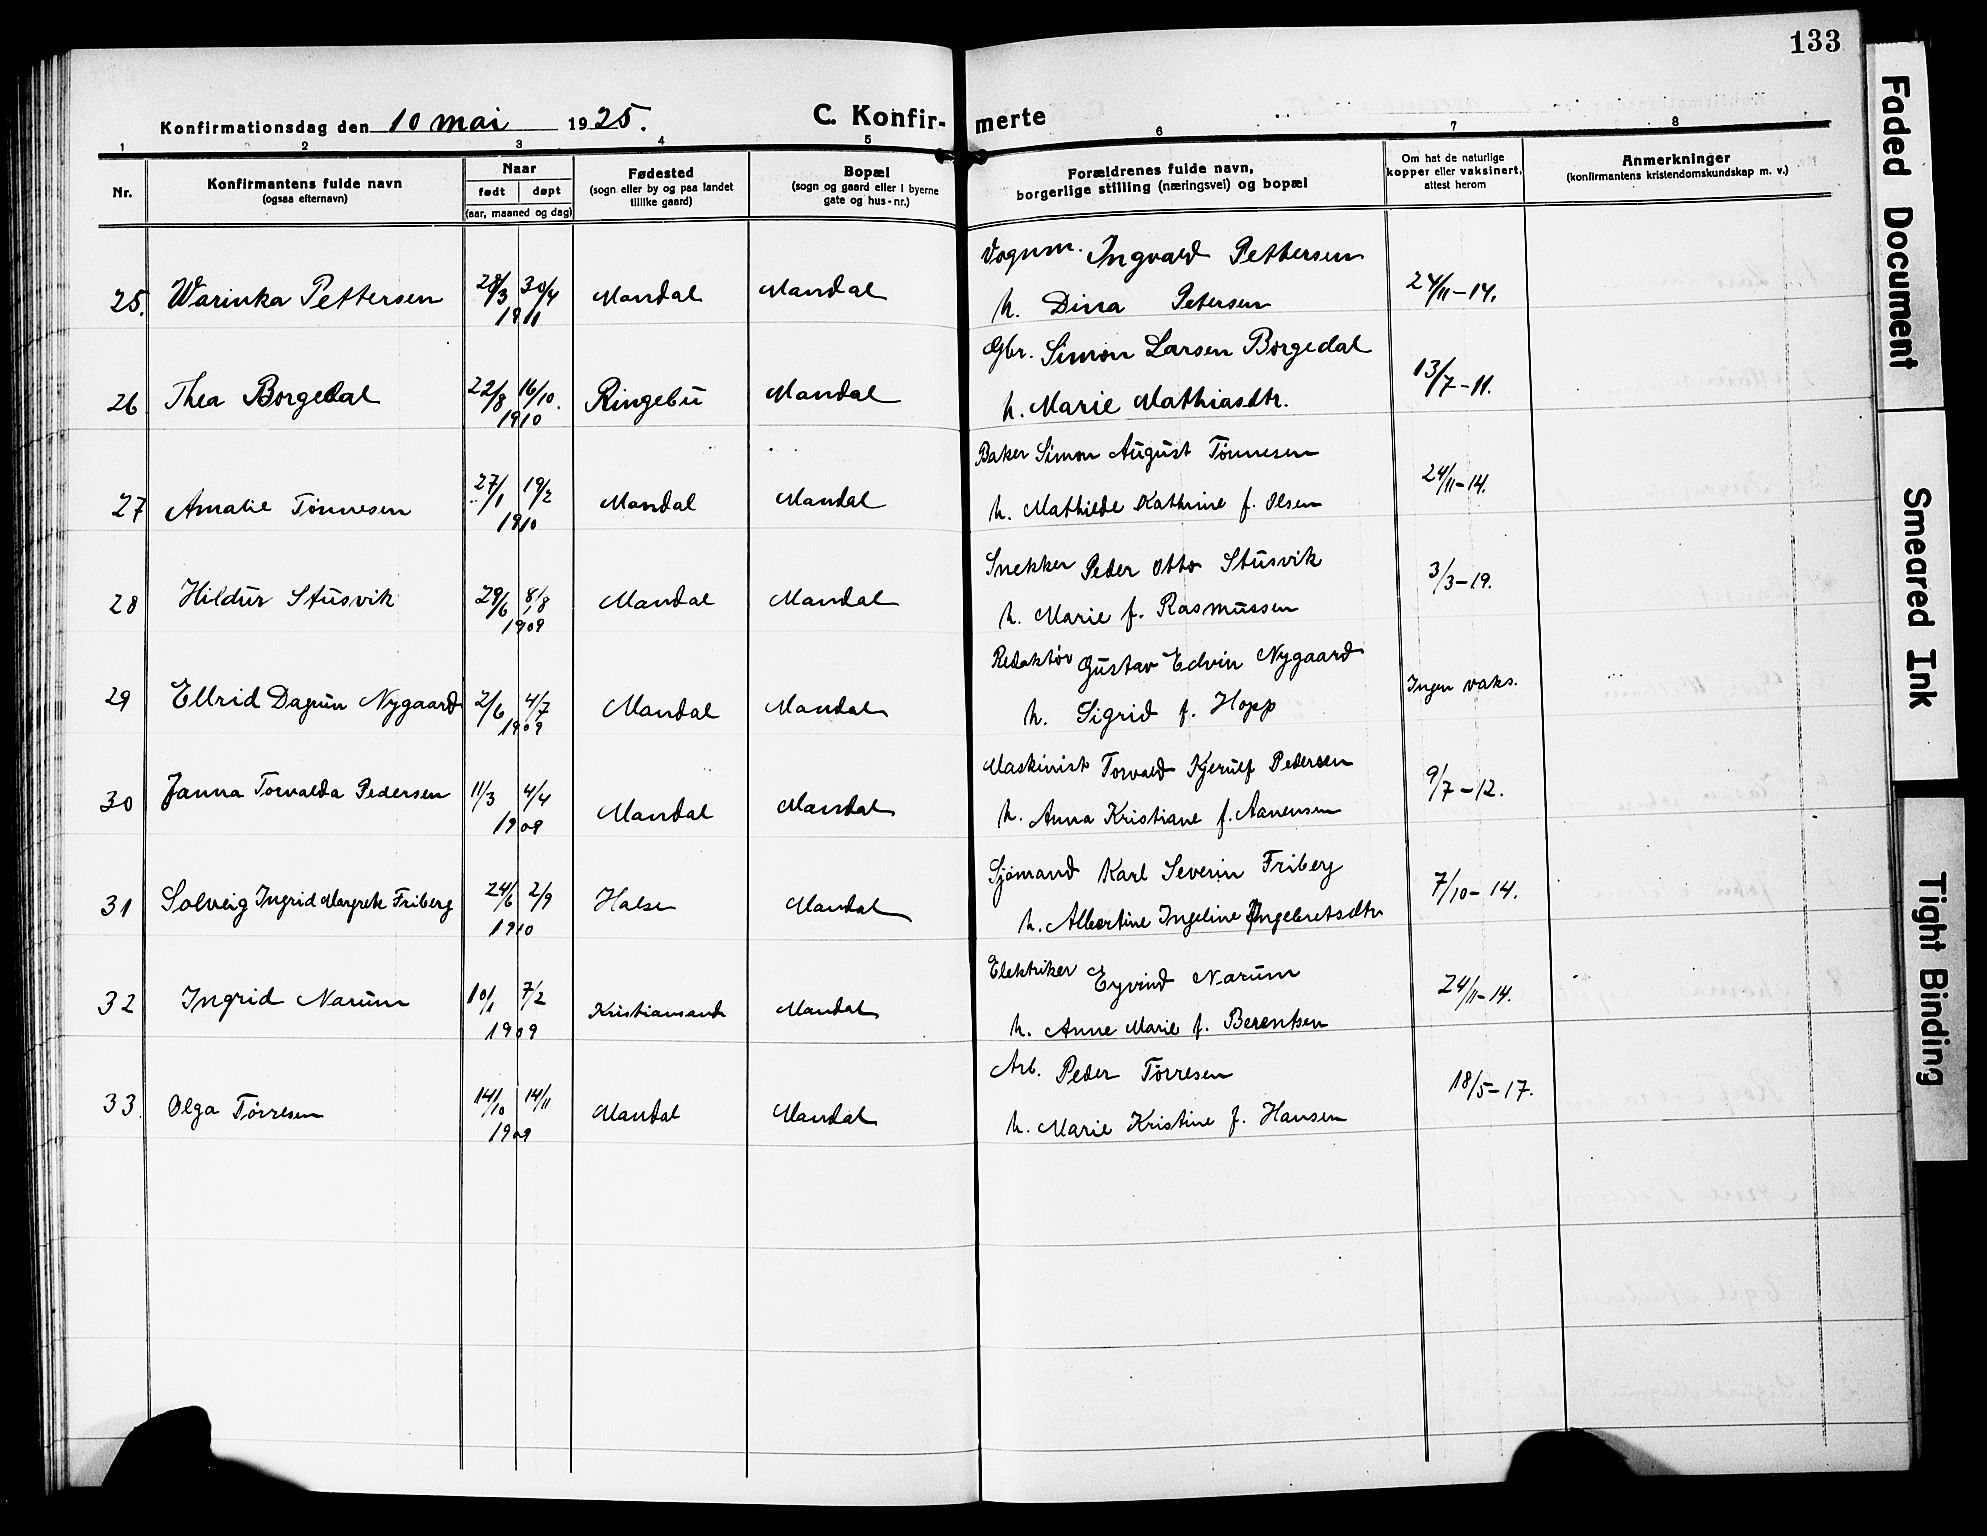 133
Konfirmationsdag den 10 mai 1925.
C. Konfirmerte
1 2 3 4 5 6 7 8
Nr.
Konfirmantens fulde navn
(ogsaa efternavn)
Naar
født døpt
(aar, maaned og dag)
Fødested
(sogn eller by og paa landet
tillike gaard)
Bopæl
(sogn og gaard eller i byerne
gate og hus-nr.)
Forældrenes fulde navn,
borgerlige stilling (næringsvei) og bopæl
Om hat de naturlige
kopper eller vaksinert,
attest herom
Anmerkninger
(konfirmantens kristendomskundskap m. v.)
Vognm. Ingvald Pettersen
25. Warinka Pettersen 28/3 30/4 1911 Mandal Mandal h. Dina Petersen 24/11-14.
Gbr. Simon Larsen Borgedal
26 Thea Borgedal 22/8 16/10. 1910 Ringebu Mandal h. Marie Mathiasdtr. 13/7-11.
Baker Simon August Tønnesen
27 Amalie Tønnesen 27/1 19/2 1910 Mandal Mandal h. Mathilde Kathrine f. Olsen 24/11-14.
Snekker Peder Otto Stusvik
28 Hildur Stusvik 29/6 8/8 1909 Mandal Mandal h. Marie f. Rasmussen 3/3-19.
Redaktør Gustav Edvin Nygaard
29 Ellrid Dagrun Nygaard 2/6 4/7 1909 Mandal Mandal h. Sigrid f. Hopp Ingen vaks.
Maskinist Torvald Kjerulf Pedersen
30 Janna Torvalda Pedersen 11/3 4/4 1909 Mandal Mandal h. Anna Kristiane f. Aanensen 9/7-12.
Sjømand Karl Severin Friberg
31 Solveig Ingrid Margrete Friberg 24/6 2/9 1910 Halse Mandal h. Albertine Ingeline Ingebretsdtr 7/10-14.
Elektriker Eyvind Narum
32 Ingrid Narum 10/1 7/2 1909 Kristiansand Mandal h. Anne Marie f. Berentsen 24/11-14.
Arb. Peder Tørresen
33. Olga Tørresen 14/10 14/11 1909 Mandal Mandal h. Marie Kristine f. Hansen 18/5-17.
Faded Document
Smeared Ink
Tight Binding